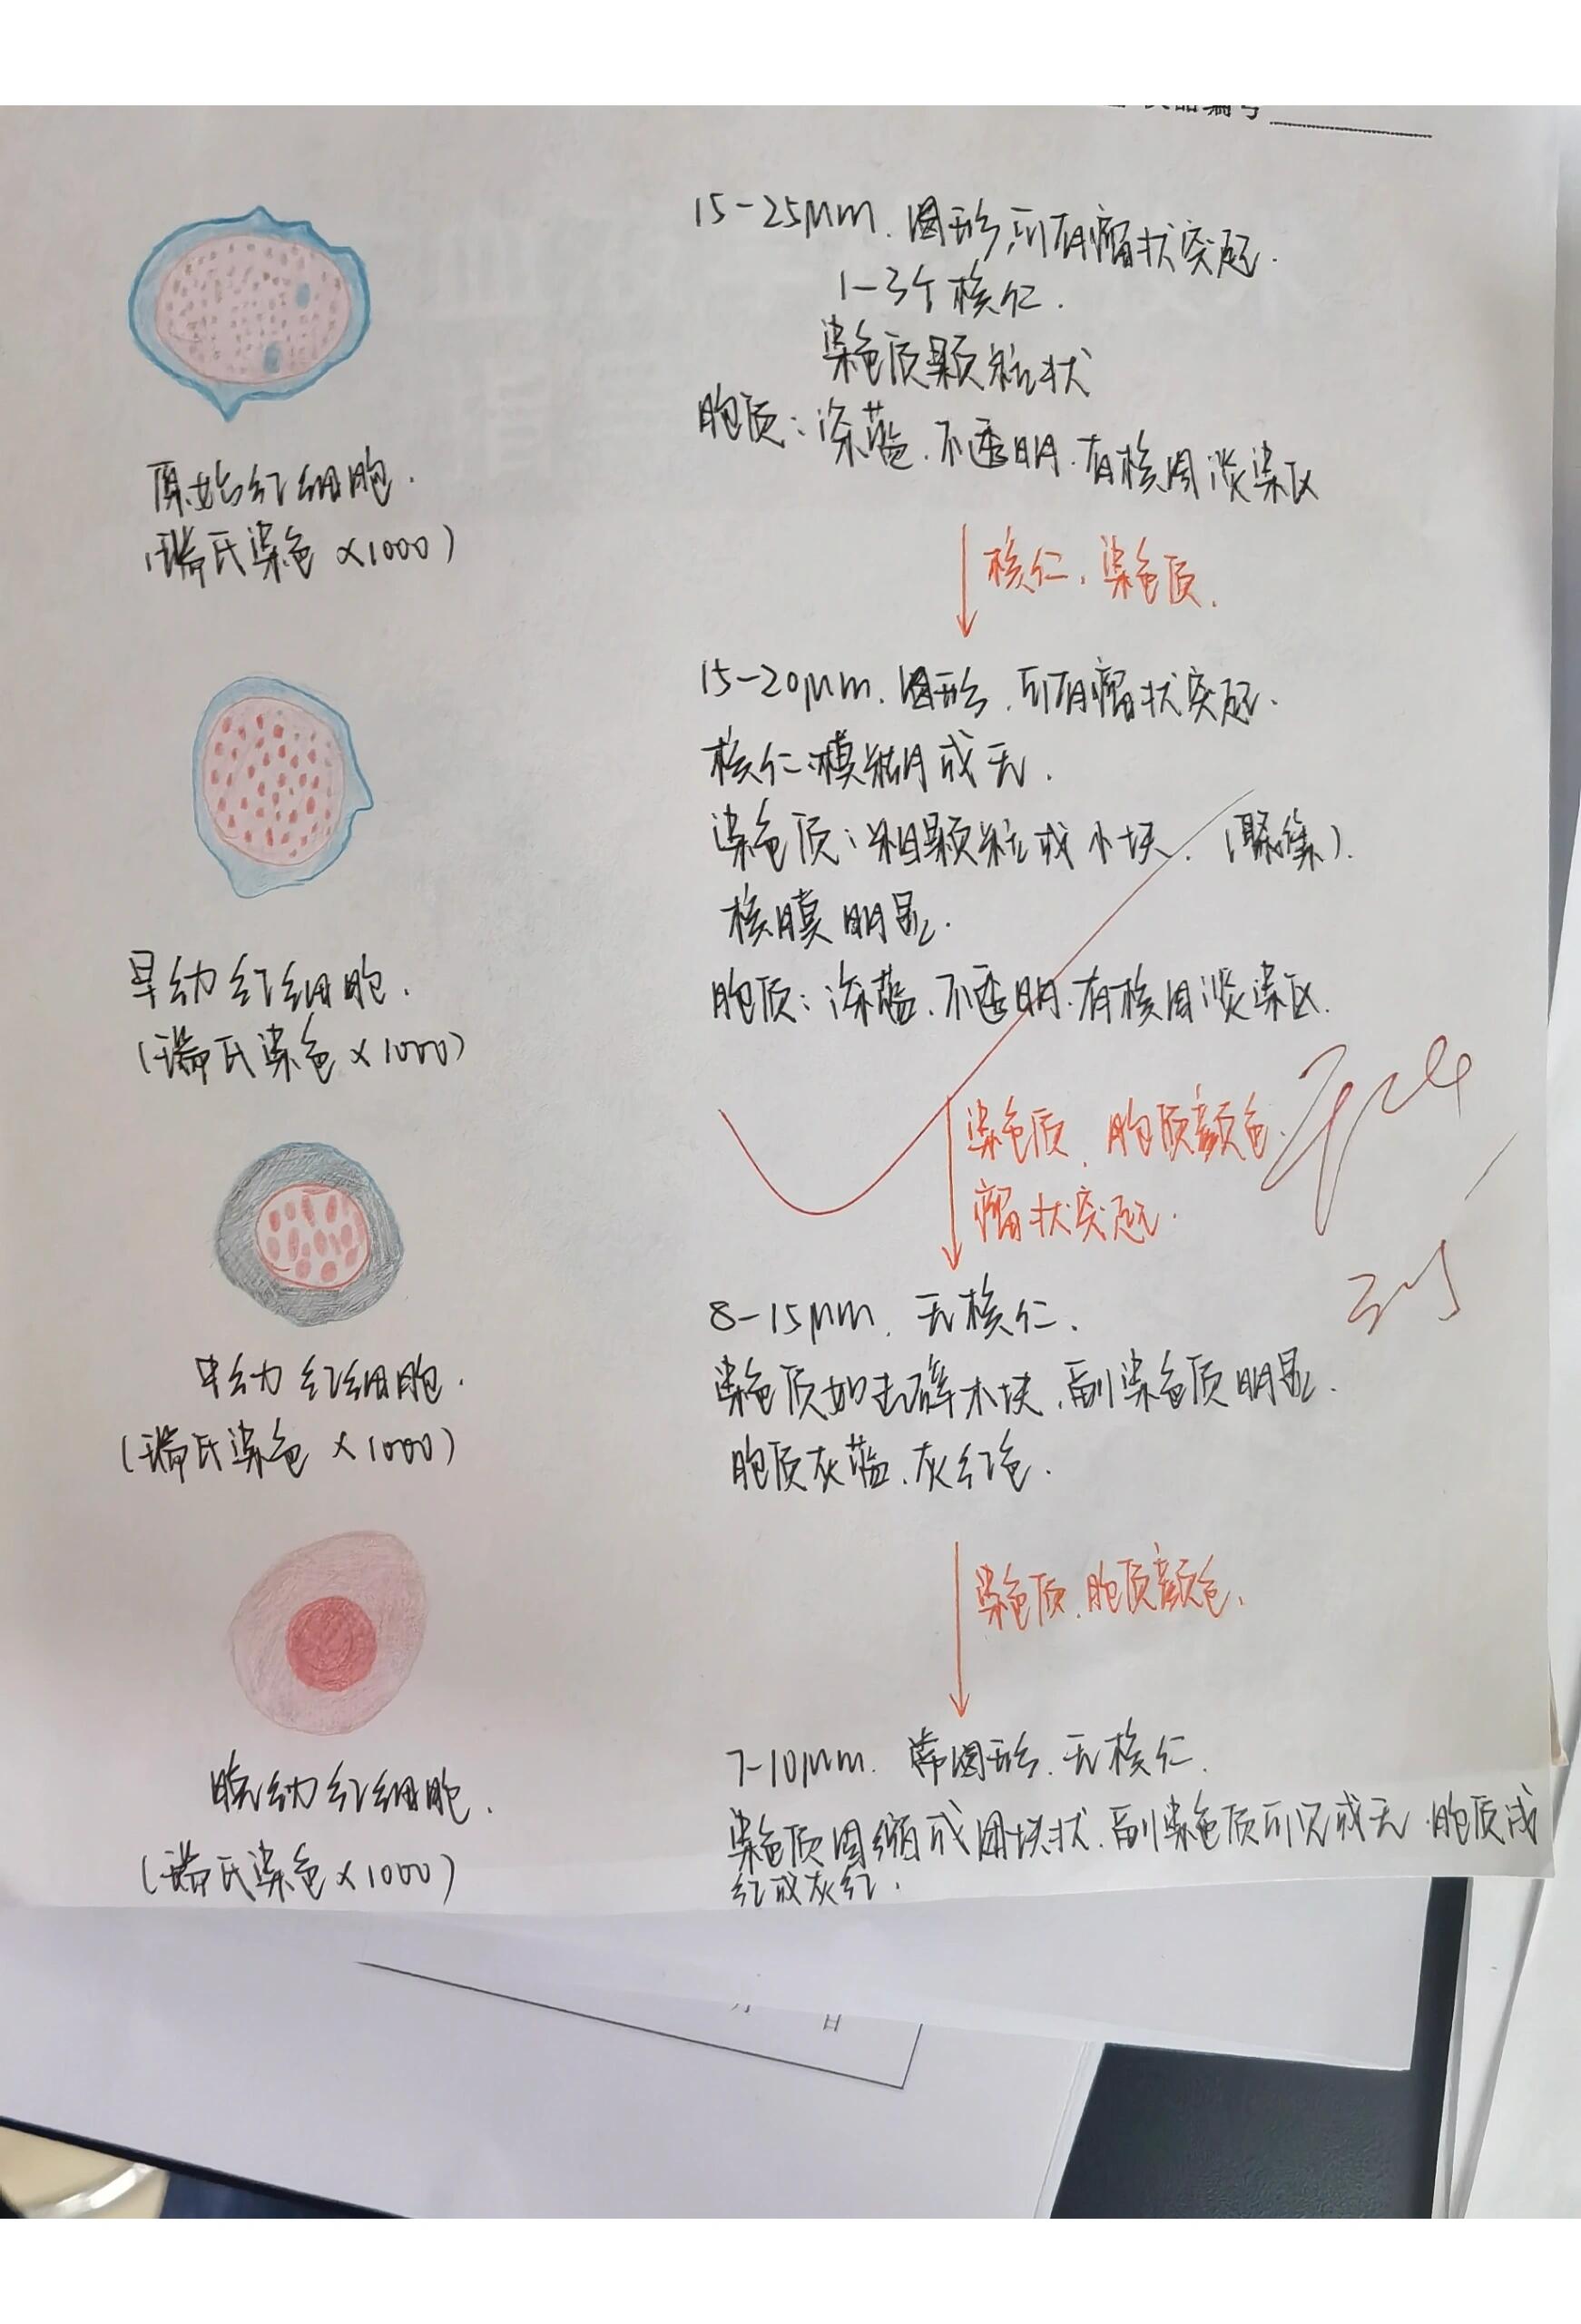 编号
15-25μm. 圆形,可有瘤状突起.
1-3个核仁.
染色质颗粒状
胞质:深蓝.不透明.有核周淡染区
原始红细胞.
(瑞氏染色 ×1000)
核仁、染色质.
15-20μm. 圆形,可有瘤状突起.
核仁模糊或无.
染色质:粗颗粒或小块.(聚集).
核膜明显.
胞质:深蓝.不透明.有核周淡染区.
早幼红细胞.
(瑞氏染色×1000)
染色质、胞质颜色.
瘤状突起.
8-15μm. 无核仁.
染色质如击碎木块,副染色质明显.
胞质灰蓝、灰红色.
中幼红细胞.
(瑞氏染色 ×1000)
染色质、胞质颜色.
7-10μm. 常圆形.无核仁.
染色质固缩成团块状.副染色质可见或无.胞质成
红或灰红.
晚幼红细胞.
(瑞氏染色×1000)
月 日